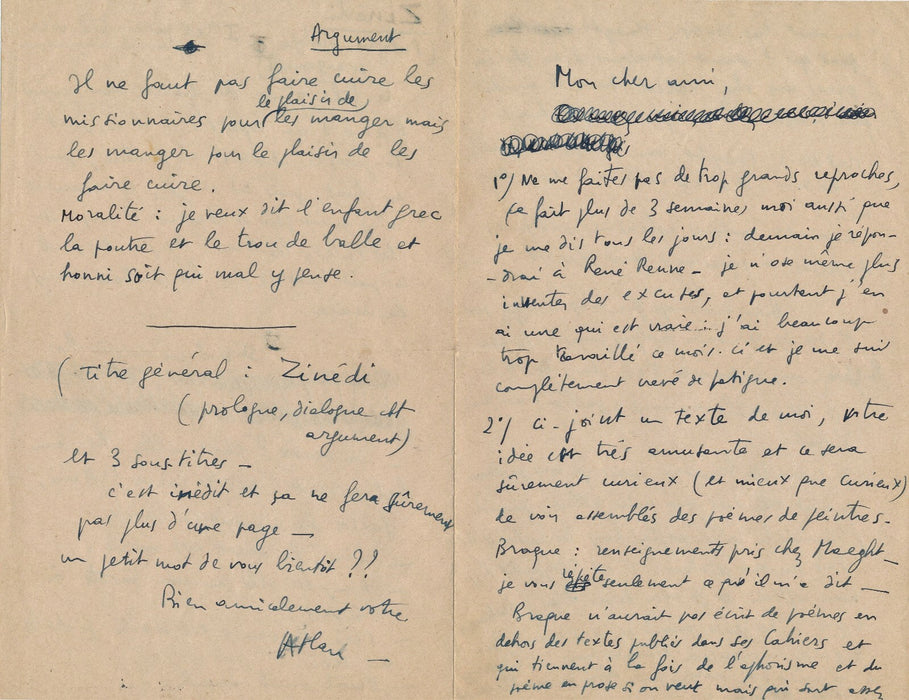 Argument
Il ne faut pas faire cuire les
missionnaires pour le plaisir de les manger mais
les manger pour le plaisir de les
faire cuire.
Moralité : je veux dit l'enfant grec
la poutre et le trou de balle et
honni soit qui mal y pense.
(Titre général : Zinédi
(prologue, dialogue et
argument)
et 3 sous-titres —
c'est inédit et ça ne fera sûrement
pas plus d'une page —
un petit mot de vous bientôt ??
Bien amicalement votre
Atlan —
Mon cher ami,
1°/ Ne me faites pas de trop grands reproches,
ça fait plus de 3 semaines moi aussi que
je me dis tous les jours : demain je répon-
-drai à René Renne - je n'ose même plus
inventer des excuses, et pourtant j'en
ai une qui est vraie : j'ai beaucoup
trop travaillé ce mois-ci et je me suis
complètement crevé de fatigue.
2°/ ci-joint un texte de moi, votre
idée est très amusante et ce sera
sûrement curieux (et mieux que curieux)
de voir assemblés des poèmes de peintres-
Braque : renseignements pris chez Maeght -
je vous répète seulement ce qu'il m'a dit —
Braque n'aurait pas écrit de poèmes en
dehors des textes publiés dans ses Cahiers et
qui tiennent à la fois de l'aphorisme et du
poème en prose si on veut mais qui sont assez